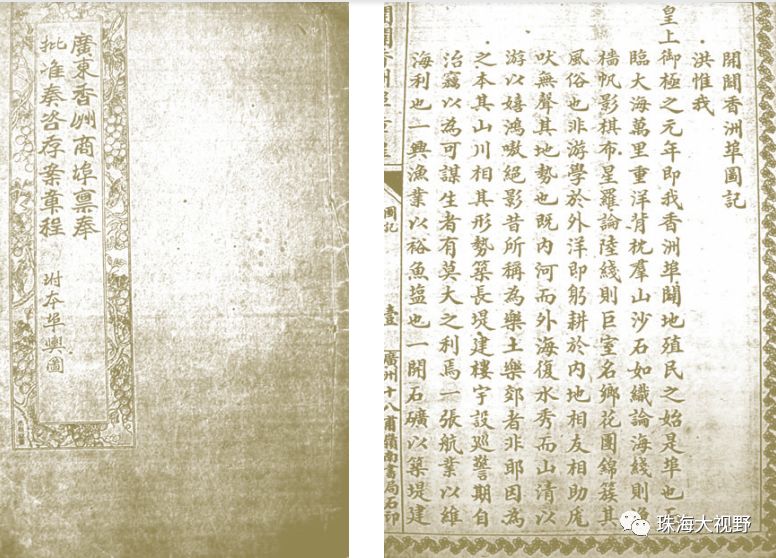 廣東香洲商埠禀奉
批准奏咨存案章程
附本埠輿圖
開闢香洲埠圖記
洪惟我
皇上御極之元年即我香洲埠闢地殖民之始是埠也
臨大海萬里重洋背枕羣山沙石如織論海綫則
檣帆影棋布星羅論陸綫則巨室名鄉花團錦簇其
風俗也非游學於外洋即躬耕於内地相友相助厖
吠無聲其地勢也既内河而外海復水秀而山清以
游以嬉鴻嗷絕影昔所稱為樂土樂郊者非耶因為
之本其山川相其形勢築長堤建樓宇設廵警期自
治竊以為可謀生者有莫大之利焉一張航業以維
海利也一興漁業以裕魚塩也一開石礦以築堤建
圖記
壹
廣州十八甫嶺南書局石印
珠海大视野